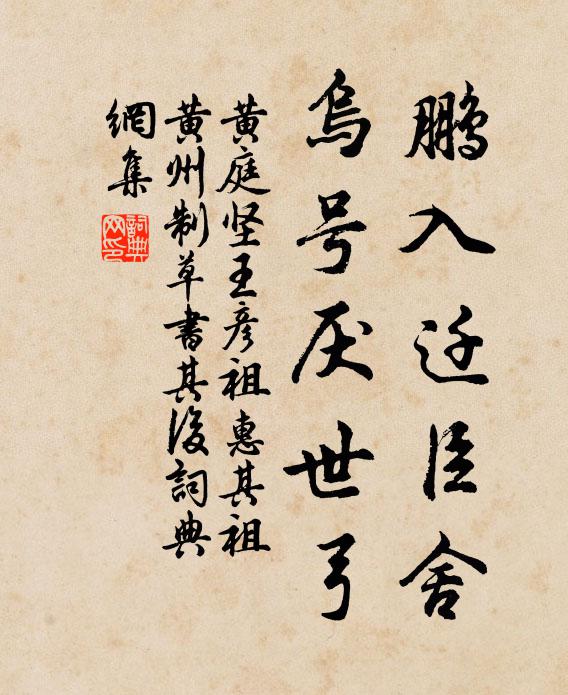 鹏入迁臣舍
乌号厌世弓
黄庭坚王彦祖惠其祖
黄州制草书其后词典
網集
詞典網印